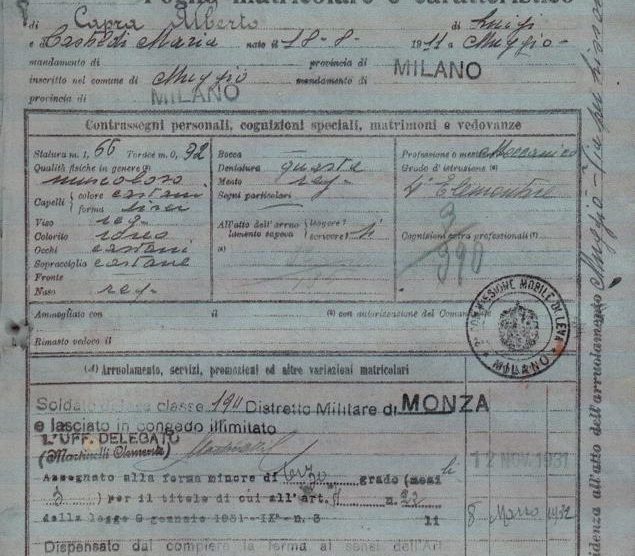 Foglio matricolare e caratteristico
di Capra Alberto di Luigi
e Casteldi Maria nato il 18-8- 1911 a Muggiò-
mandamento di provincia di MILANO
inscritto nel comune di Muggiò mandamento di
provincia di MILANO
Contrassegni personali, cognizioni speciali, matrimoni e vedovanze
Statura m. 1, 66 Torace m. 0, 92
Qualità fisiche in genere
muscoloso
Capelli colore castani
forma lisci
Viso reg-
Colorito roseo
Occhi castani
Sopracciglia castane
Fronte
Naso reg-
Bocca
Dentatura guasta
Mento reg-
Segni particolari
All'atto dell'arruolamento sapeva leggere?
scrivere? si
Professione o mestiere Meccanico
Grado d'istruzione
4ª Elementare
Cognizioni extra professionali
3
390
Ammogliato con il con autorizzazione del
Rimasto vedovo il
COMMISSIONE MOBILE DI LEVA
MILANO
(d) Arruolamento, servizi, promozioni ed altre variazioni matricolari
Soldato di leva classe 1911 Distretto Militare di MONZA
e lasciato in congedo illimitato
L'UFF. DELEGATO
(Martinelli Clemente)
12 NOV. 1931
Assegnato alla ferma minore di terzo grado (mesi
3) per il titolo di cui all'art. n. 22
della legge 8 gennaio 1931 - IXº - n. 3 li 8 Marzo 1932
Dispensato dal compiere la ferma ai sensi dell'Art
Residenza all'atto dell'arruolamento Muggiò - Via